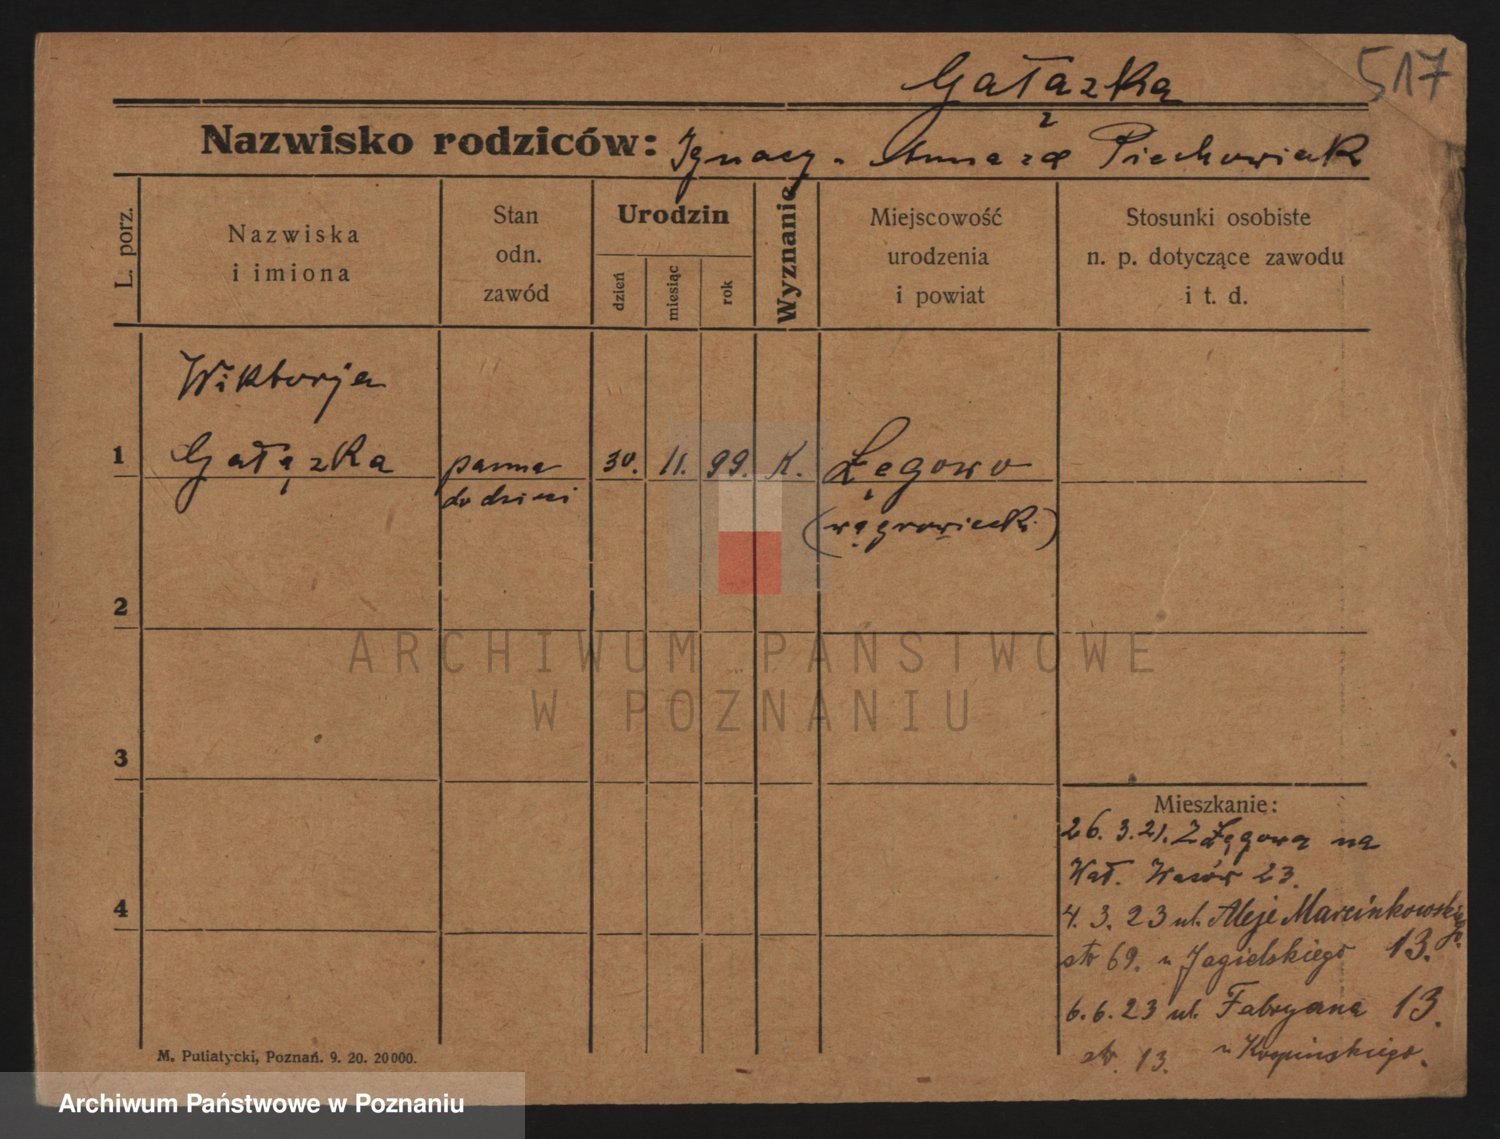 Gałązka
517
Nazwisko rodziców: Ignacy - Anna zd Piechowiak
L. porz.
Nazwiska
i imiona
Stan
odn.
zawód
Urodzin
dzień
miesiąc
rok
Wyznanie
Miejscowość
urodzenia
i powiat
Stosunki osobiste
n. p. dotyczące zawodu
i t. d.
Wiktorja
1 Gałązka panna 30. 11. 99. K. Łęgowo
do dzieci (wągrowiecki)
2
ARCHIWUM PAŃSTWOWE
W POZNANIU
3
Mieszkanie:
26. 3. 21. Z Łęgowa na
Wał. Wazów 23.
4
4. 3. 23 ul. Aleje Marcinkowskiego
str 69. u Jagielskiego 13.
6. 6. 23 ul. Fabryana 13.
str. 13. u Kropińskiego.
M. Putiatycki, Poznań. 9. 20. 20000.
Archiwum Państwowe w Poznaniu